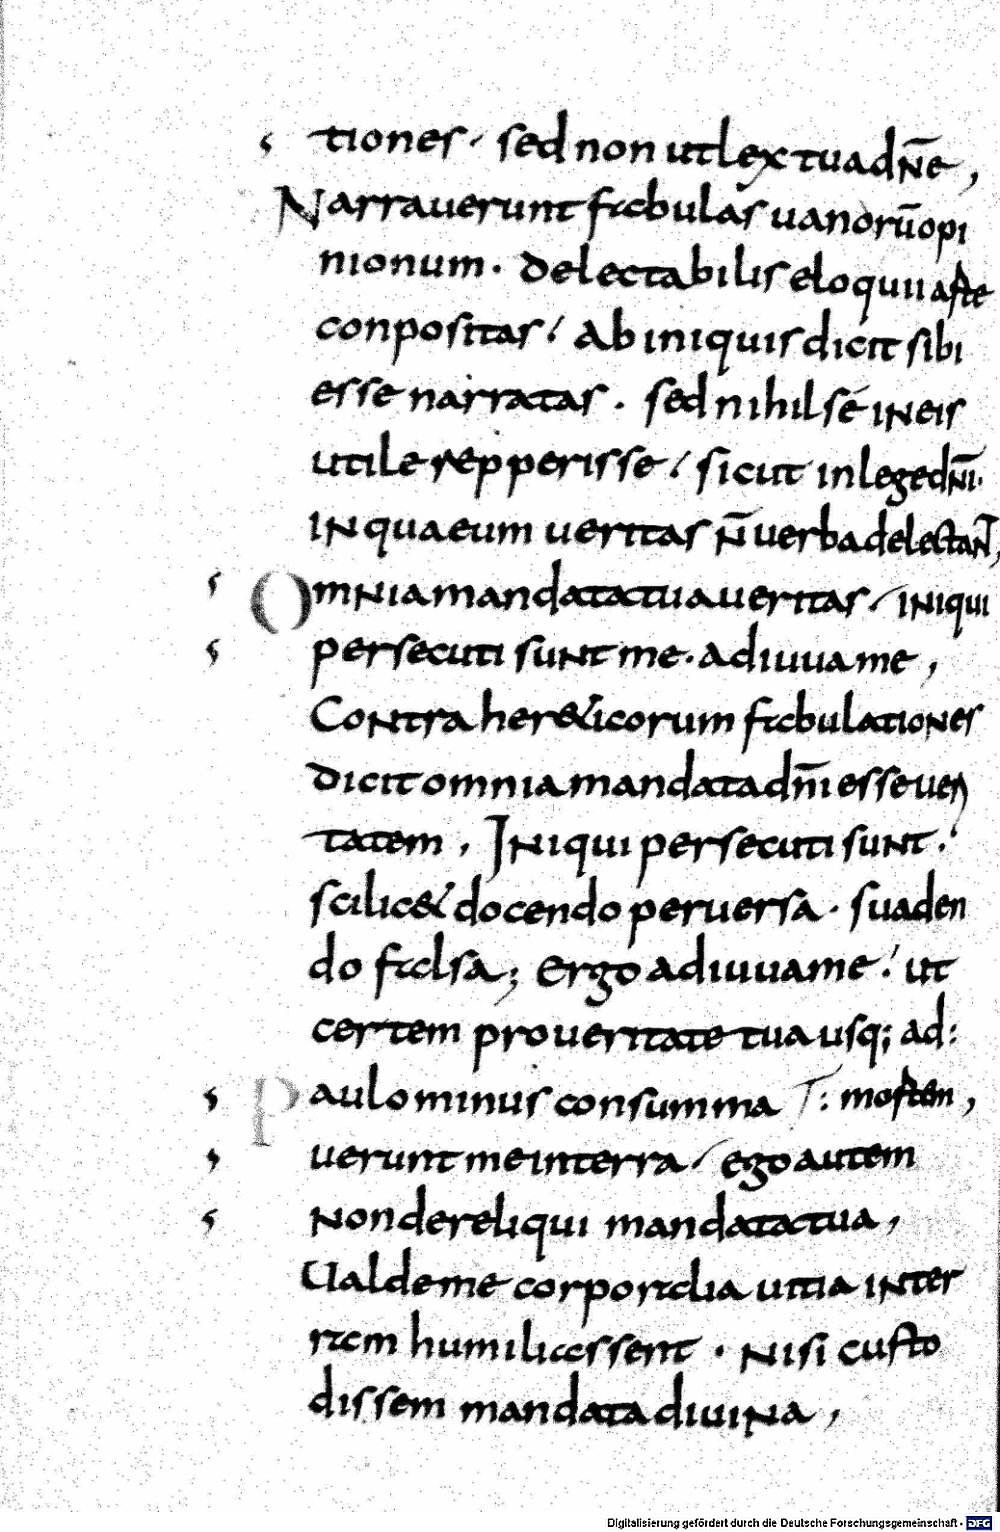 tiones, sed non ut lex tua dn̄e,
Narrauerunt fabulas uanorū opi
nionum. delectabilis eloquii arte
conpositas, Ab iniquis dicit sibi
esse narratas. sed nihil sé in eis
utile repperisse, sicut in lege dn̄i.
IN qua eum ueritas n̄ uerba delectant,
Omnia mandata tua ueritas, iniqui
persecuti sunt me. adiuua me,
Contra her&icorum fabulationes
dicit omnia mandata dn̄i esse ueri
tatem, Iniqui persecuti sunt.
scilic& docendo peruersa. suaden
do falsa; Ergo adiuua me, ut
certem pro ueritate tua usq; ad:
Paulominus consumma :mortem,
uerunt me in terra, ego autem
non dereliqui mandata tua,
Ualde me corporalia uitia inter
ram humiliassent. Nisi custo
dissem mandata diuina,
Digitalisierung gefördert durch die Deutsche Forschungsgemeinschaft - DFG